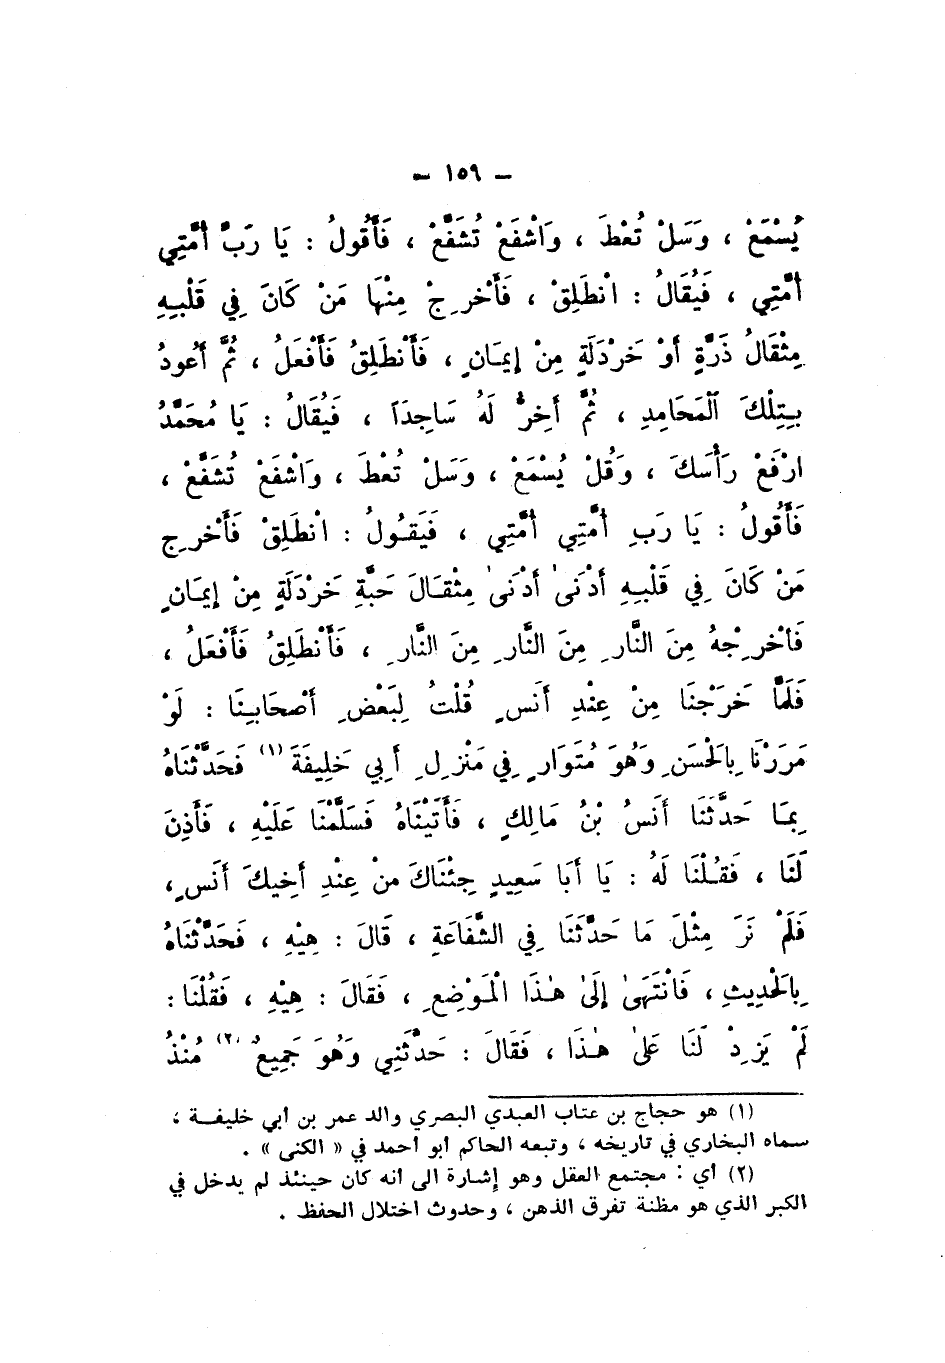 – ١٥٩ –
يُسْمَعْ ، وَسَلْ تُعْطَ ، وَاشْفَعْ تُشَفَّعْ ، فَأَقُولُ : يَا رَبِّ أُمَّتِي
أُمَّتِي ، فَيُقَالُ : انْطَلِقْ ، فَأَخْرِجْ مِنْهَا مَنْ كَانَ فِي قَلْبِهِ
مِثْقَالُ ذَرَّةٍ أَوْ خَرْدَلَةٍ مِنْ إِيمَانٍ ، فَأَنْطَلِقُ فَأَفْعَلُ ، ثُمَّ أَعُودُ
بِتِلْكَ الْمَحَامِدِ ، ثُمَّ أَخِرُّ لَهُ سَاجِدَاً ، فَيُقَالُ : يَا مُحَمَّدُ
ارْفَعْ رَأْسَكَ ، وَقُلْ يُسْمَعْ ، وَسَلْ تُعْطَ ، وَاشْفَعْ تُشَفَّعْ ،
فَأَقُولُ : يَا رَبِ أُمَّتِي أُمَّتِي ، فَيَقُولُ : انْطَلِقْ فَأَخْرِج
مَنْ كَانَ فِي قَلْبِهِ أَدْنَىٰ أَدْنَىٰ مِثْقَالَ حَبَّةِ خَرْدَلَةٍ مِنْ إِيمَانٍ
فَأَخْرِجْهُ مِنَ النَّارِ مِنَ النَّارِ مِنَ النَّارِ ، فَأَنْطَلِقُ فَأَفْعَلُ ،
فَلَمَّا خَرَجْنَا مِنْ عِنْدِ أَنَسٍ قُلْتُ لِبَعْضِ أَصْحَابِنَا : لَوْ
مَرَرْنَا بِالْحَسَنِ وَهُوَ مُتَوَارٍ فِي مَنْزِلِ أَبِي خَلِيفَةَ (١) فَحَدَّثْنَاهُ
بِمَا حَدَّثَنَا أَنَسُ بْنُ مَالِكٍ ، فَأَتَيْنَاهُ فَسَلَّمْنَا عَلَيْهِ ، فَأَذِنَ
لَنَا ، فَقُلْنَا لَهُ : يَا أَبَا سَعِيدٍ جِئْنَاكَ منْ عِنْدِ أَخِيكَ أَنَسٍ ،
فَلَمْ نَرَ مِثْلَ مَا حَدَّثَنَا فِي الشَّفَاعَةِ ، قَالَ : هِيْهِ ، فَحَدَّثْنَاهُ
بِالْحَدِيثِ ، فَانْتَهَىٰ إِلَىٰ هٰذَا الْمَوْضِعِ ، فَقَالَ : هِيْهِ ، فَقُلْنَا :
لَمْ يَزِدْ لَنَا عَلَىٰ هٰذَا ، فَقَالَ : حَدَّثَنِي وَهُوَ جَمِيعٌ (٢) مُنْذُ
(١) هو حجاج بن عتاب العبدي البصري والد عمر بن أبي خليفة ،
سماه البخاري في تاريخه ، وتبعه الحاكم أبو أحمد في « الكنى » .
(٢) أي : مجتمع العقل وهو إشارة الى أنه كان حينئذ لم يدخل في
الكبر الذي هو مظنة تفرق الذهن ، وحدوث اختلال الحفظ .